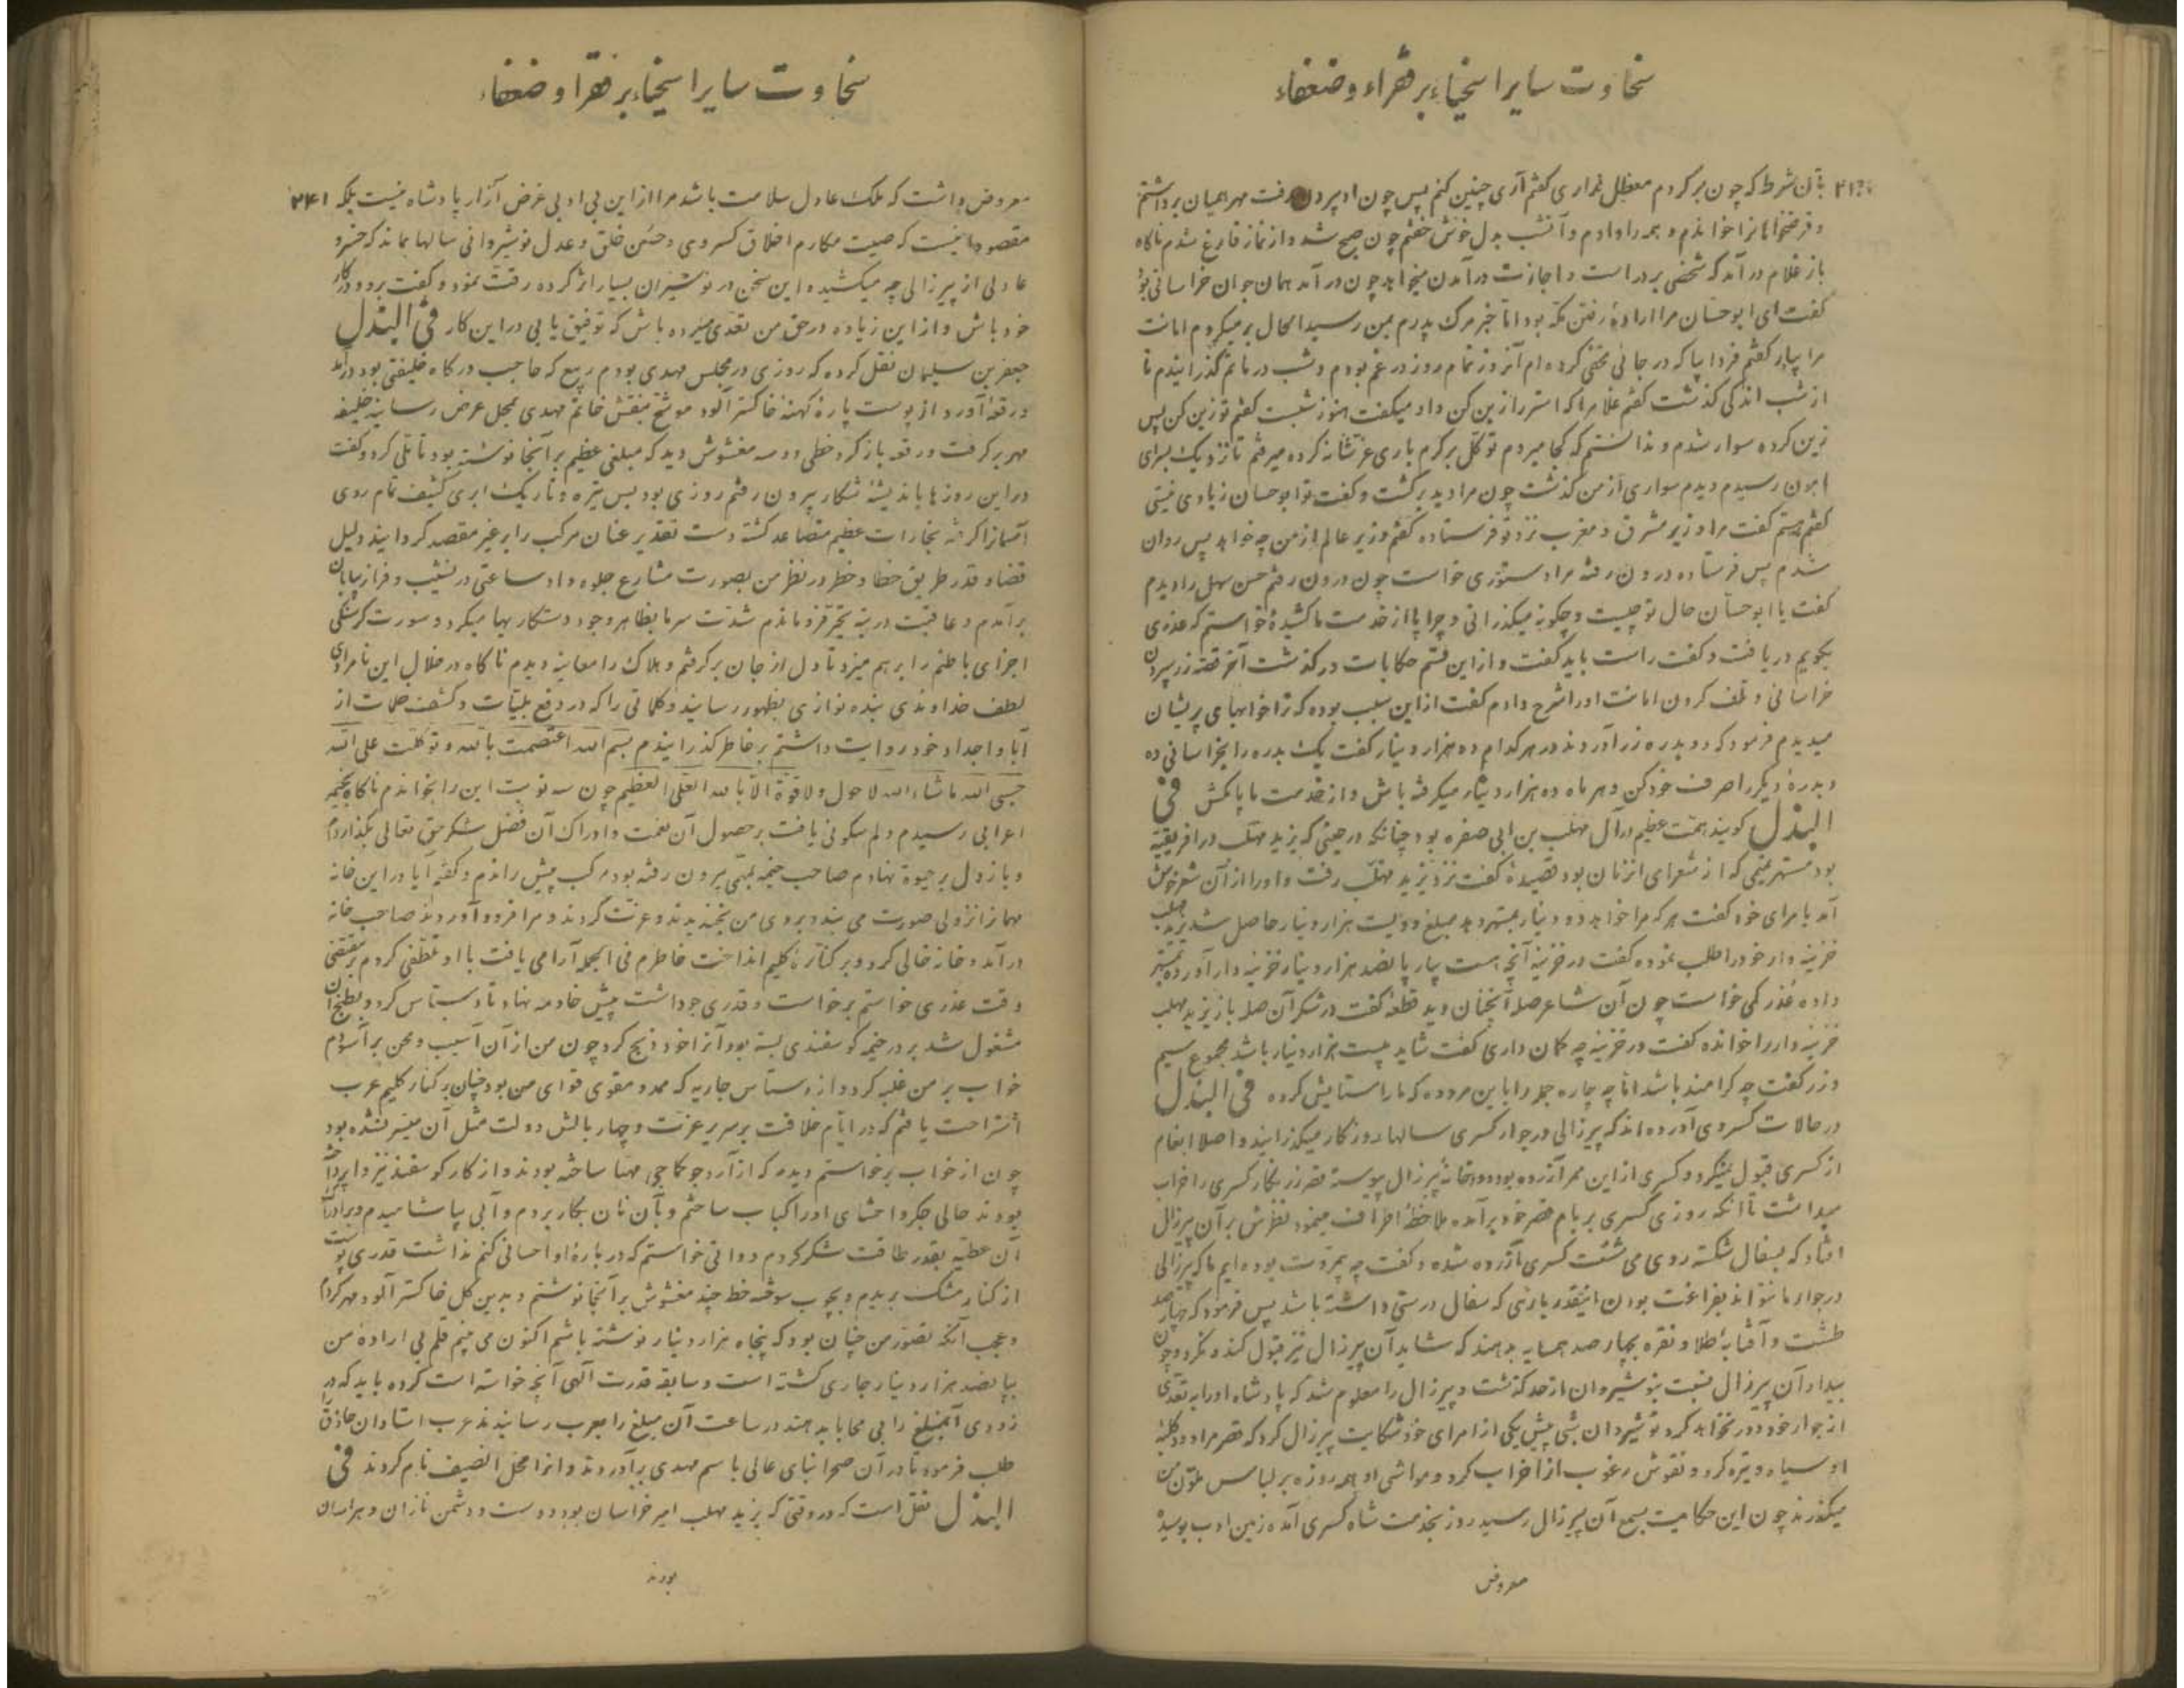 سخاوت سایر اسخیاء بر فقراء و ضعفاء
بآن شرط که چون برگردم معطل نداری گفتم آری چنین کنم پس چون او بیرون رفت مهر همیان برداشتم
و قرضخواهانرا خواندم و همه را دادم و آنشب بدل خوش خفتم چون صبح شد و از نماز فارغ شدم ناگاه
باز غلام درآمد که شخصی بر در است و اجازت درآمدن میخواهد چون درآمد همان جوان خراسانی بود
گفت ای ابوحسان مرا ارادهٔ رفتن مکه بود اما خبر مرگ پدرم بمن رسید الحال برمیگردم امانت
مرا بیار گفتم فردا بیا که در جائی مخفی کرده‌ام آنروز تمام روز در غم بودم و شب در ماتم گذرانیدم تا
از شب اندکی گذشت گفتم غلام را که استر را زین کن و او میگفت هنوز شبست گفتم تو زین کن پس
زین کرده سوار شدم و ندانستم که کجا میروم توکل بر کرم باری عز شانه کرده میرفتم تا نزدیک بسرای
مامون رسیدم دیدم سواری از من گذشت چون مرا دید برگشت و گفت تو ابوحسان زیادی نیستی
گفتم هستم گفت مرا وزیر مشرق و مغرب نزد تو فرستاده گفتم وزیر عالم از من چه خواهد پس روان
شدم پس فرستاده درون رفته مرا دستوری خواست چون درون رفتم حسن سهل را دیدم
گفت یا ابوحسان حال تو چیست و چگونه میگذرانی و چرا پا از خدمت ما کشیدهٔ خواستم که عذری
بگویم دریافت و گفت راست باید گفت و از این قسم حکایات درگذشت آخر قصه زر سپردن
خراسانی و تلف کردن امانت او را شرح دادم گفت از این سبب بوده که ترا خوابهای پریشان
میدیدم فرمود که دو بدره زر آوردند در هر کدام ده هزار دینار گفت یک بدره را بخراسانی ده
و بدرهٔ دیگر را صرف خود کن و هر ماه ده هزار دینار میگرفته باش و از خدمت ما پا مکش فی
البذل گویند همت عظیم در آل مهلب بن ابی صفره بود چنانکه در حینی که یزید مهلب در افریقیه
بود تمیمی که از شعرای انزمان بود قصیدهٔ گفت نزد یزید مهلب رفت و او را از آن شعر خوش
آمد بامرای خود گفت هر که مرا خواهد دو دینار بدهد مبلغ دویست هزار دینار حاصل شد یزید مهلب
خزینه‌دار خود را طلب نموده گفت در خزینه آنچه هست بیار پانصد هزار دینار خزینه‌دار آورده
داده عذر کمی خواست چون آن شاعر صله آنچنان دید قطعهٔ گفت در شکر آن صله باز یزید مهلب
خزینه‌دار را خوانده گفت در خزینه چه گمان داری گفت شاید بیست هزار دینار باشد مجموع سیم
و زر گفت چه کرامند باشد اما چه چاره جمله را باین مرد ده که ما را ستایش کرده فی البذل
در حالات کسروی آورده‌اند که پیرزالی در جوار کسری سالها روزگار میگذرانید و اصلا انعام
از کسری قبول نمیکرد و کسری از این ممر آزرده بود دود خانهٔ پیرزال پیوسته قصر زرنگار کسری را خراب
میداشت تا آنکه روزی کسری بر بام قصر خود برآمده ملاحظهٔ اطراف مینمود نظرش بر آن پیرزال
افتاد که بسفال شکسته روی می شست کسری آزرده شده و گفت چه بی‌مروت بوده‌ایم ما که پیرزالی
در جوار ما نتواند بفراغت بودن اینقدر یاری که سفال درستی داشته باشد پس فرمود که چهارصد
طشت و آفتابه طلا و نقره بچهار صد همسایه بدهند که شاید آن پیرزال نیز قبول کند نکرد و چون
بیداد آن پیرزال نسبت بنوشیروان از حد گذشت و پیرزال را معلوم شد که پادشاه او را به تعدی
از جوار خود دور نخواهد کرد نوشیروان شبی پیش یکی از امرای خود شکایت پیرزال کرد که قصر مرا دود کلبهٔ
او سیاه و تیره کرد و نقوش مرغوب از آن خراب کرد و مواشی او همه روزه بر لباس ملون من
میگذرند چون این حکایت بسمع آن پیرزال رسید روز بخدمت شاه کسری آمده زمین ادب بوسید
معروض
سخاوت سایر اسخیاء بر فقرا و ضعفاء
۲۴۱
معروض داشت که ملک عادل سلامت باشد مرا از این بی‌ادبی غرض آزار پادشاه نیست بلکه
مقصود اینست که صیت مکارم اخلاق کسروی و حسن خلق و عدل نوشیروانی سالها بماند که خسرو
عادلی از پیرزالی چه میکشیده این سخن در نوشیروان بسیار اثر کرده رقت نمود و گفت برو و در کار
خود باش و از این زیاده در حق من تعدی میزده باش که توفیق یابی در این کار فی البذل
جعفر بن سلیمان نقل کرده که روزی در مجلس مهدی بودم ربیع که حاجب درگاه خلیفتی بود درآمد
و رقعهٔ آورد از پوست پارهٔ کهنه خاکستر آلود موشح بنقش خاتم مهدی بمحل عرض رسانید خلیفه
مهر برگرفت و رقعه باز کرد خطی دو سه مغشوش دید که مبلغی عظیم بر آنجا نوشته بود تأملی کرد و گفت
در این روزها باندیشهٔ شکار بیرون رفتم روزی بود بس تیره و تاریک ابری کثیف تمام روی
آسمانرا گرفته بخارات عظیم متصاعد گشته دست تقدیر عنان مرکب را بر غیر مقصد گردانید و لیل
قضا و قدر طریق خطا و خطر در نظر من بصورت مشارع جلوه داد ساعتی در نشیب و فراز بیابان
برآمدم و عاقبت در تیه تحیر فرو ماندم شدت سرما بظاهر وجود دستکاریها میکرد و سورت گرسنگی
اجزای باطنم را برهم میزد تا دل از جان برگرفتم و هلاک را معاینه دیدم ناگاه در خلال این نامرادی
لطف خداوندی بنده نوازی بظهور رسانید و کلماتی را که در دفع بلیات و کشف ملمات از
آبا و اجداد خود روایت داشتم بر خاطر گذرانیدم بسم الله اعتصمت بالله و توکلت علی الله
حسبی الله ما شاء الله لا حول ولا قوة الا بالله العلی العظیم چون سه نوبت این را بخواندم ناگاه بخیمه
اعرابی رسیدم و دلم سکونی یافت بر حصول آن نعمت و ادراک آن فضل شکر حق تعالی بگذاردم
و باز دل بر حیوة نهادم صاحب خیمه بمهمی بیرون رفته بود مرکب پیش راندم و گفتم آیا در این خانه
مهمانرا نزولی صورت می بندد بروی من بخندیدند و عزت کردند و مرا فرود آوردند صاحب خانه
درآمد و خانه خالی کرد و بر کنار گلیم انداخت خاطرم فی الجمله آرامی یافت با او تلطفی کردم بر مقتضی
وقت عذری خواستم برخاست و قدری جو داشت پیش خادمه نهاد تا دستاس کرد و بطبخ آن
مشغول شد بر در خیمه گوسفندی بسته بود آنرا خود ذبح کرد چون من از آن آسیب و محن برآسودم
خواب بر من غلبه کرد و از دستاس جاریه که ممد و مقوی قوای من بود چنان بر کنار گلیم عرب
استراحت یافتم که در ایام خلافت بر سریر عزت و چهار بالش دولت مثل آن میسر نشده بود
چون از خواب برخاستم دیدم که از آرد جو کاچی مهیا ساخته بودند و از کار گوسفند نیز واپرداخته
بودند حالی جگر و احشای او را کباب ساختم و بآن نان بکار بردم و آبی بیاشامیدم و برابر آن
آن عطیه بقدر طاقت شکر کردم دواتی خواستم که در بارهٔ او احسانی کنم نداشت قدری پوست
از کنار مشک بریدم و بچوب سوخته خط چند مغشوش بر آنجا نوشتم و بدین گل خاکستر آلود مهر کردم
و عجب آنکه تصور من چنان بود که پنجاه هزار دینار نوشته باشم اکنون می بینم قلم بی ارادهٔ من
بپانصد هزار دینار جاری گشته است و سابقه قدرت آلهی آنچه خواسته است کرده باید که در
زودی آنمبلغ را بی محابا بدهند در ساعت آن مبلغ را بعرب رسانیدند عرب استادان حاذق را
طلب فرمود تا در آن صحرا بنای عالی باسم مهدی برآوردند و انرا محل الضیف نام کردند فی
البذل نقل است که در وقتی که یزید مهلب امیر خراسان بود دوست و دشمن نازان و هراسان
بودند